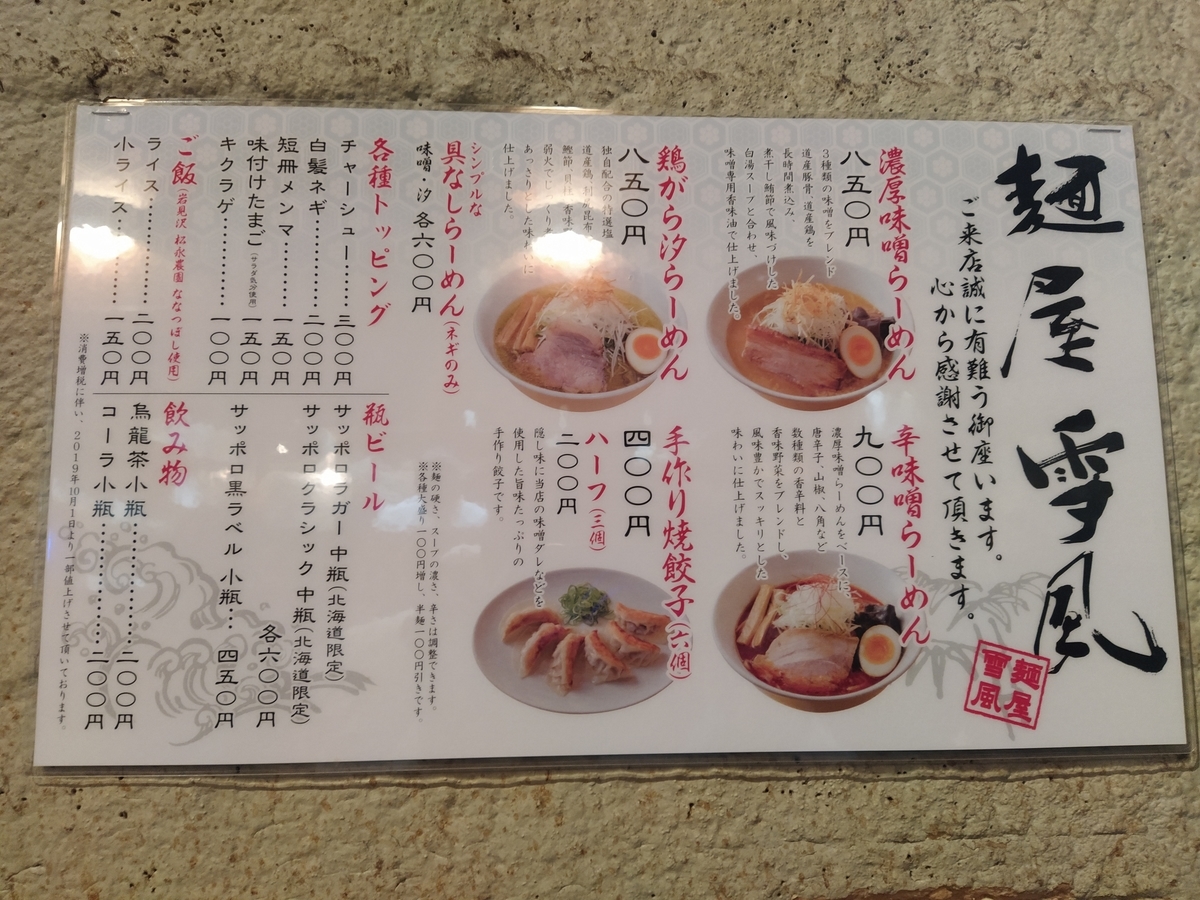 麺屋 雪風
ご来店誠に有難う御座います。
心から感謝させて頂きます。
麺屋
雪風
濃厚味噌らーめん
八五〇円
3種類の味噌をブレンド
道産豚骨、道産鶏を
長時間煮込み、
煮干し鮪節で風味づけした
白湯スープと合わせ、
味噌専用香味油で仕上げました。
辛味噌らーめん
九〇〇円
濃厚味噌らーめんをベースに、
唐辛子、山椒、八角など
数種類の香辛料と
香味野菜をブレンドし、
風味豊かでスッキリとした
味わいに仕上げました。
鶏がら汐らーめん
八五〇円
独自配合の特選塩
道産鶏、利尻昆布
鰹節、貝柱、香味
弱火でじっくり
あっさりとした味わいに
仕上げました。
手作り焼餃子(六個)
四〇〇円
ハーフ(三個)
二〇〇円
隠し味に当店の味噌ダレなどを
使用した旨味たっぷりの
手作り餃子です。
シンプルな
具なしらーめん(ネギのみ)
味噌・汐 各六〇〇円
※麺の硬さ、スープの濃さ、辛さは調整できます。
※各種大盛り一〇〇円増し、半麺一〇〇円引きです。
各種トッピング
チャーシュー…三〇〇円
白髪ネギ…………二〇〇円
短冊メンマ………一五〇円
味付けたまご(サラダ気分使用)一五〇円
キクラゲ…………一〇〇円
ご飯(岩見沢 松永農園 ななつぼし使用)
ライス……………二〇〇円
小ライス…………一五〇円
瓶ビール
サッポロラガー 中瓶(北海道限定)
サッポロクラシック 中瓶(北海道限定)
各六〇〇円
サッポロ黒ラベル 小瓶… 四五〇円
飲み物
烏龍茶小瓶…………二〇〇円
コーラ小瓶…………二〇〇円
※消費増税に伴い、2019年10月1日より一部値上げさせて頂いております。